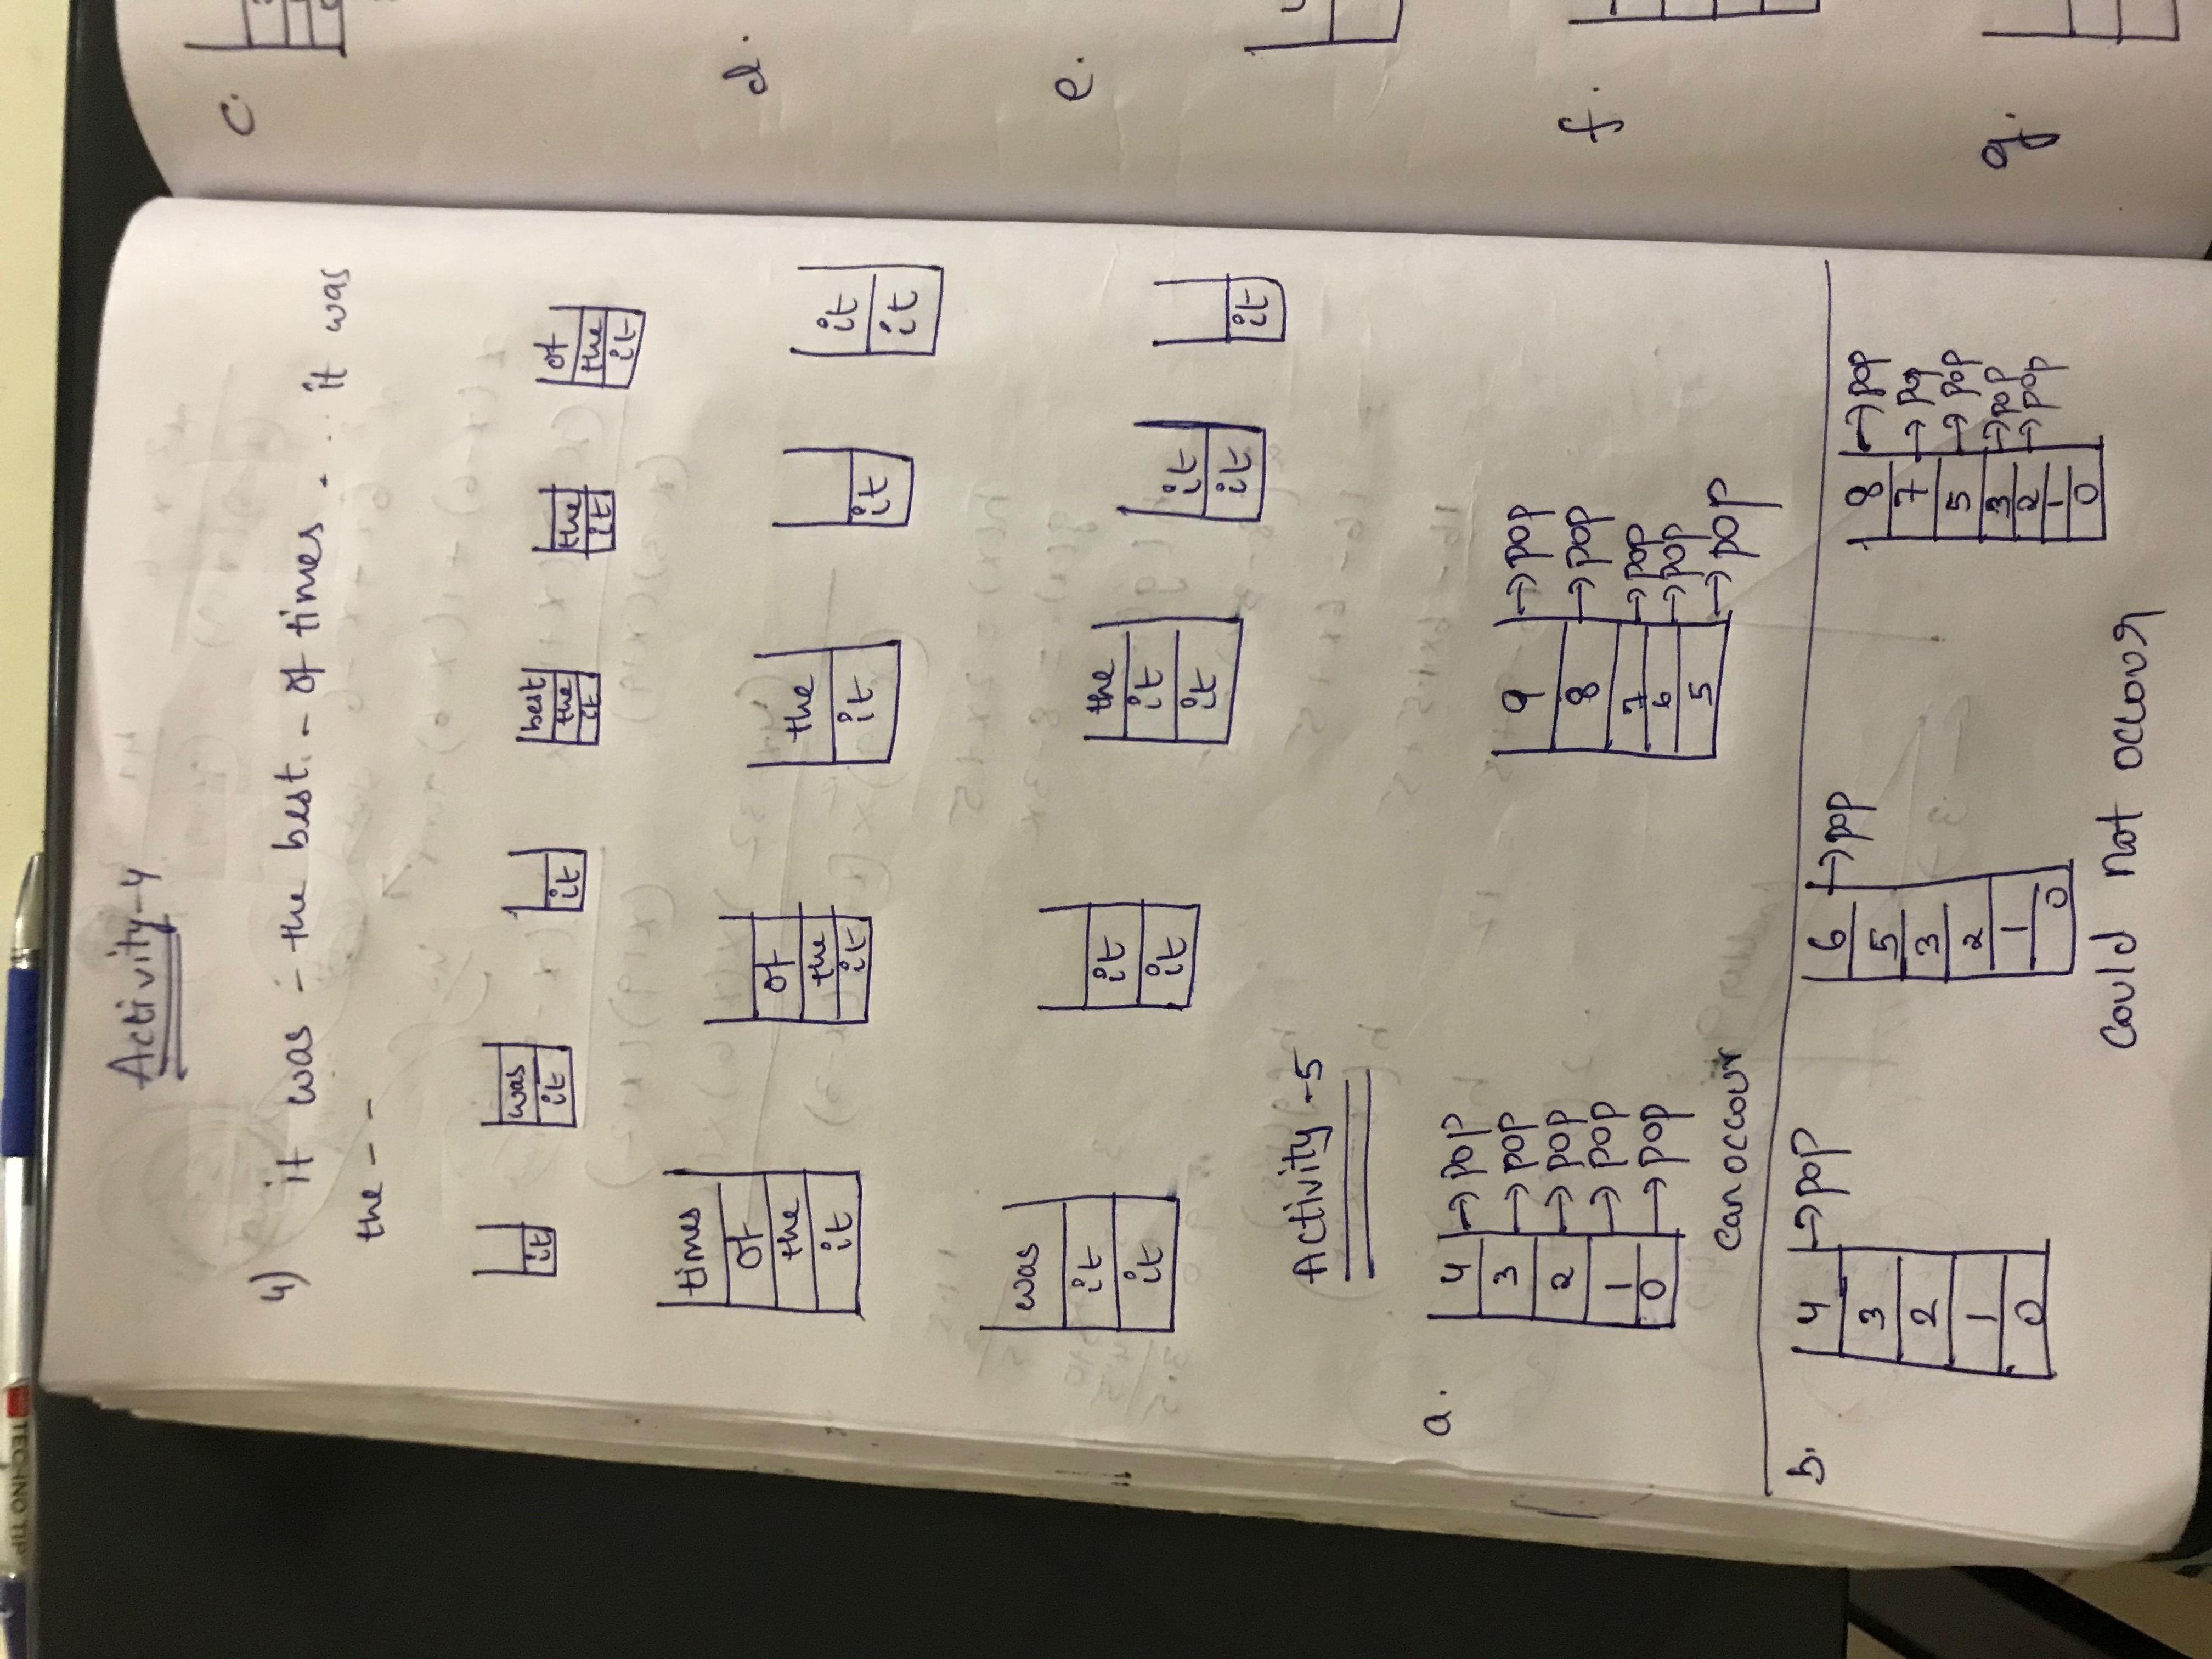 TECHNO TIP
Activity-4
4) it was - the best. - of times - . . it was
the - -
it
was
it
it
best
the
it
the
it
of
the
it
times
of
the
it
of
the
it
the
it
it
it
it
was
it
it
it
it
the
it
it
it
it
it
Activity -5
a.
4 → pop
3 → pop
2 → pop
1 → pop
0 → pop
9 → pop
8 → pop
7 → pop
6 → pop
5 → pop
can occour
b.
4 → pop
3
2
1
0
6 → pop
5
3
2
1
0
8 → pop
7 → pop
5 → pop
3 → pop
2 → pop
1
0
could not occour
c.
d.
e.
f.
g.